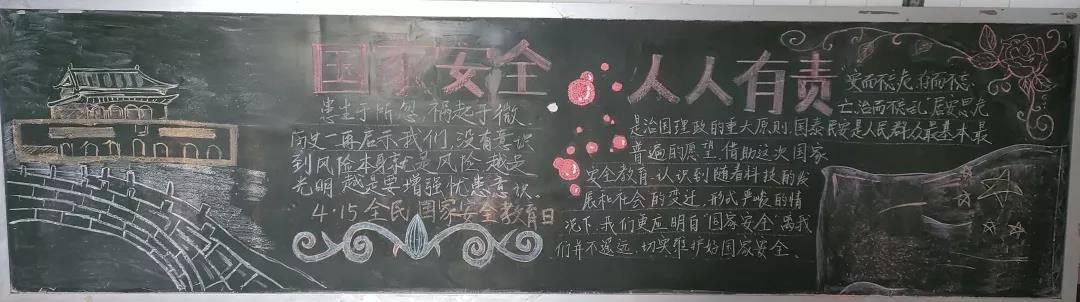 国家安全 人人有责
患生于所忽,祸起于微
历史一再启示我们,没有意识
到风险本身就是风险,越是
光明越是要增强忧患意识。
4·15全民国家安全教育日
安而不忘危,存而不忘
亡,治而不忘乱,居安思危
是治国理政的重大原则,国泰民安是人民群众最基本最
普遍的愿望,借助这次国家
安全教育,认识到随着科技的发
展和社会的变迁,形式严峻的情
况下,我们更应明白"国家安全"离我
们并不遥远,切实维护好国家安全。